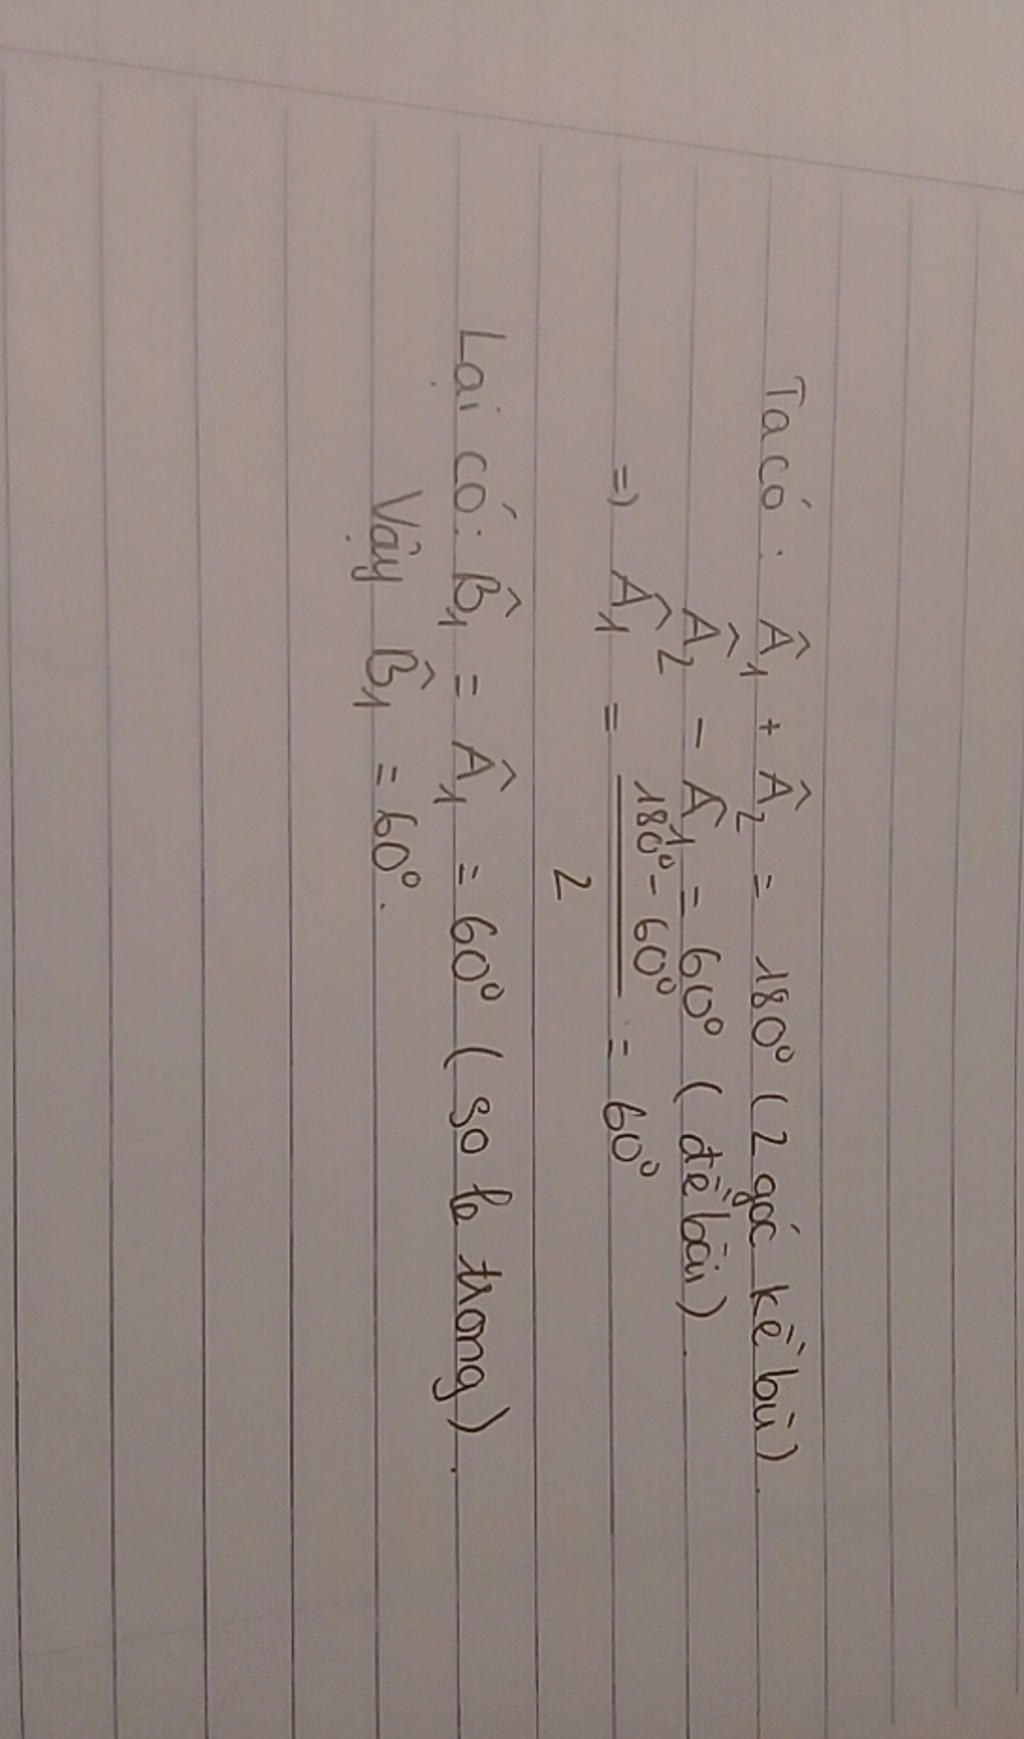 Ta có : Â₁ + Â₂ = 180° ( 2 góc kề bù ) .
Â₂ - Â₁ = 60° ( đề bài ) .
=> Â₁ = (180° - 60°)/2 = 60°
Lại có : B̂₁ = Â₁ = 60° ( so le trong ) .
Vậy B̂₁ = 60° .